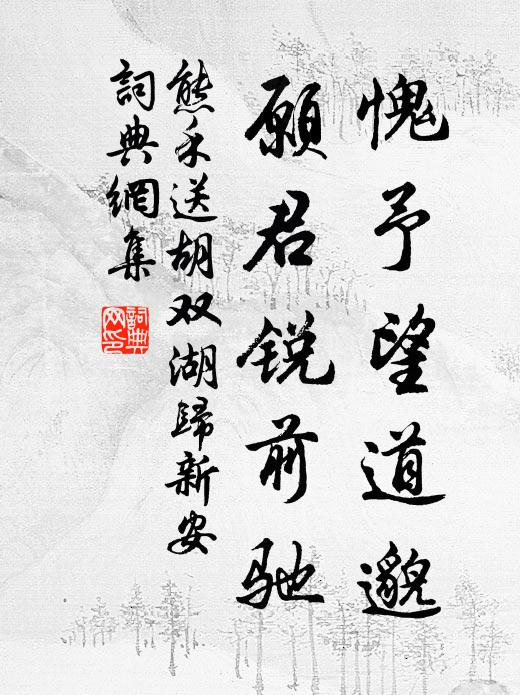 愧予望道邈
愿君锐前驰
熊禾送胡双湖歸新安
詞典網集
詞典
网印